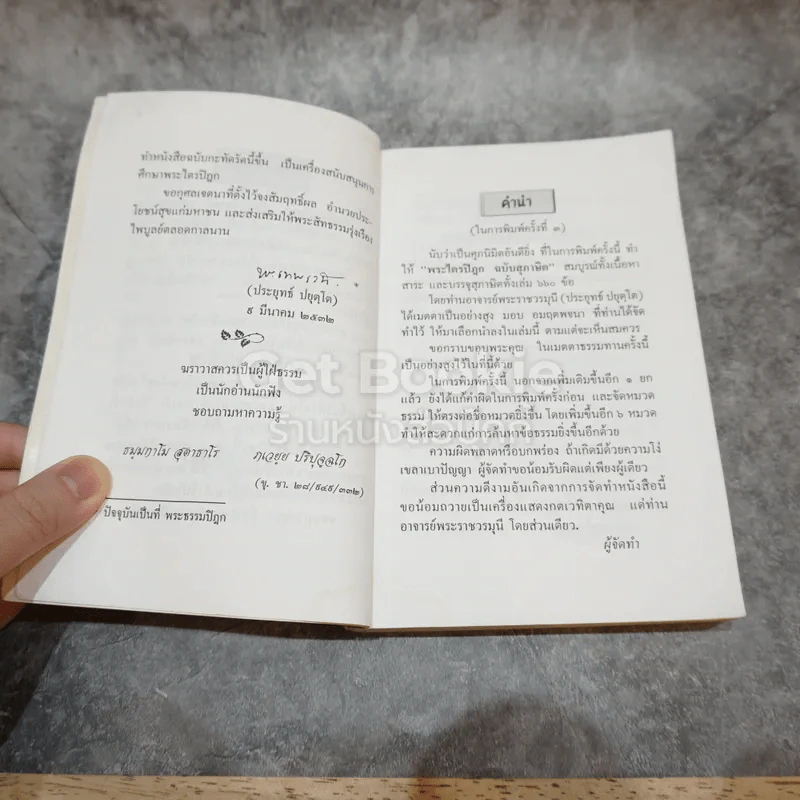 ทำหนังสือฉบับกะทัดรัดนี้ขึ้น เป็นเครื่องสนับสนุนการ
ศึกษาพระไตรปิฎก
ขอกุศลเจตนาที่ตั้งไว้จงสัมฤทธิ์ผล อำนวยประ-
โยชน์สุขแก่มหาชน และส่งเสริมให้พระสัทธรรมรุ่งเรือง
ไพบูลย์ตลอดกาลนาน
พระเทพเวที ๑
(ประยุทธ์ ปยุตฺโต)
๙ มีนาคม ๒๕๓๒
ฆราวาสควรเป็นผู้ใฝ่ธรรม
เป็นนักอ่านนักฟัง
ชอบถามหาความรู้
ธมฺมกาโม สุตาธาโร ภเวยฺย ปริปุจฺฉโก
(ขุ. ชา. ๒๘/๙๔๙/๓๓๒)
ปัจจุบันเป็นที่ พระธรรมปิฎก
คำนำ
(ในการพิมพ์ครั้งที่ ๓)
นับว่าเป็นศุภนิมิตอันดียิ่ง ที่ในการพิมพ์ครั้งนี้ ทำ
ให้ "พระไตรปิฎก ฉบับสุภาษิต" สมบูรณ์ทั้งเนื้อหา
สาระ และบรรจุสุภาษิตทั้งเล่ม ๖๖๐ ข้อ
โดยท่านอาจารย์พระราชวรมุนี (ประยุทธ์ ปยุตฺโต)
ได้เมตตาเป็นอย่างสูง มอบ อมฤตพจนา ที่ท่านได้จัด
ทำไว้ ให้มาเลือกนำลงในเล่มนี้ ตามแต่จะเห็นสมควร
ขอกราบขอบพระคุณ ในเมตตาธรรมท่านครั้งนี้
เป็นอย่างสูงไว้ในที่นี้ด้วย
ในการพิมพ์ครั้งนี้ นอกจากเพิ่มเติมขึ้นอีก ๑ ยก
แล้ว ยังได้แก้คำผิดในการพิมพ์ครั้งก่อน และจัดหมวด
ธรรม ให้ตรงต่อชื่อหมวดยิ่งขึ้น โดยเพิ่มขึ้นอีก ๖ หมวด
ทำให้สะดวกแก่การค้นหาข้อธรรมยิ่งขึ้นอีกด้วย
ความผิดพลาดหรือบกพร่อง ถ้าเกิดมีด้วยความโง่
เขลาเบาปัญญา ผู้จัดทำขอน้อมรับผิดแต่เพียงผู้เดียว
ส่วนความดีงามอันเกิดจากการจัดทำหนังสือนี้
ขอน้อมถวายเป็นเครื่องแสดงกตเวทิตาคุณ แด่ท่าน
อาจารย์พระราชวรมุนี โดยส่วนเดียว.
ผู้จัดทำ
Get Bookie
ร้านหนังสือเก็ท